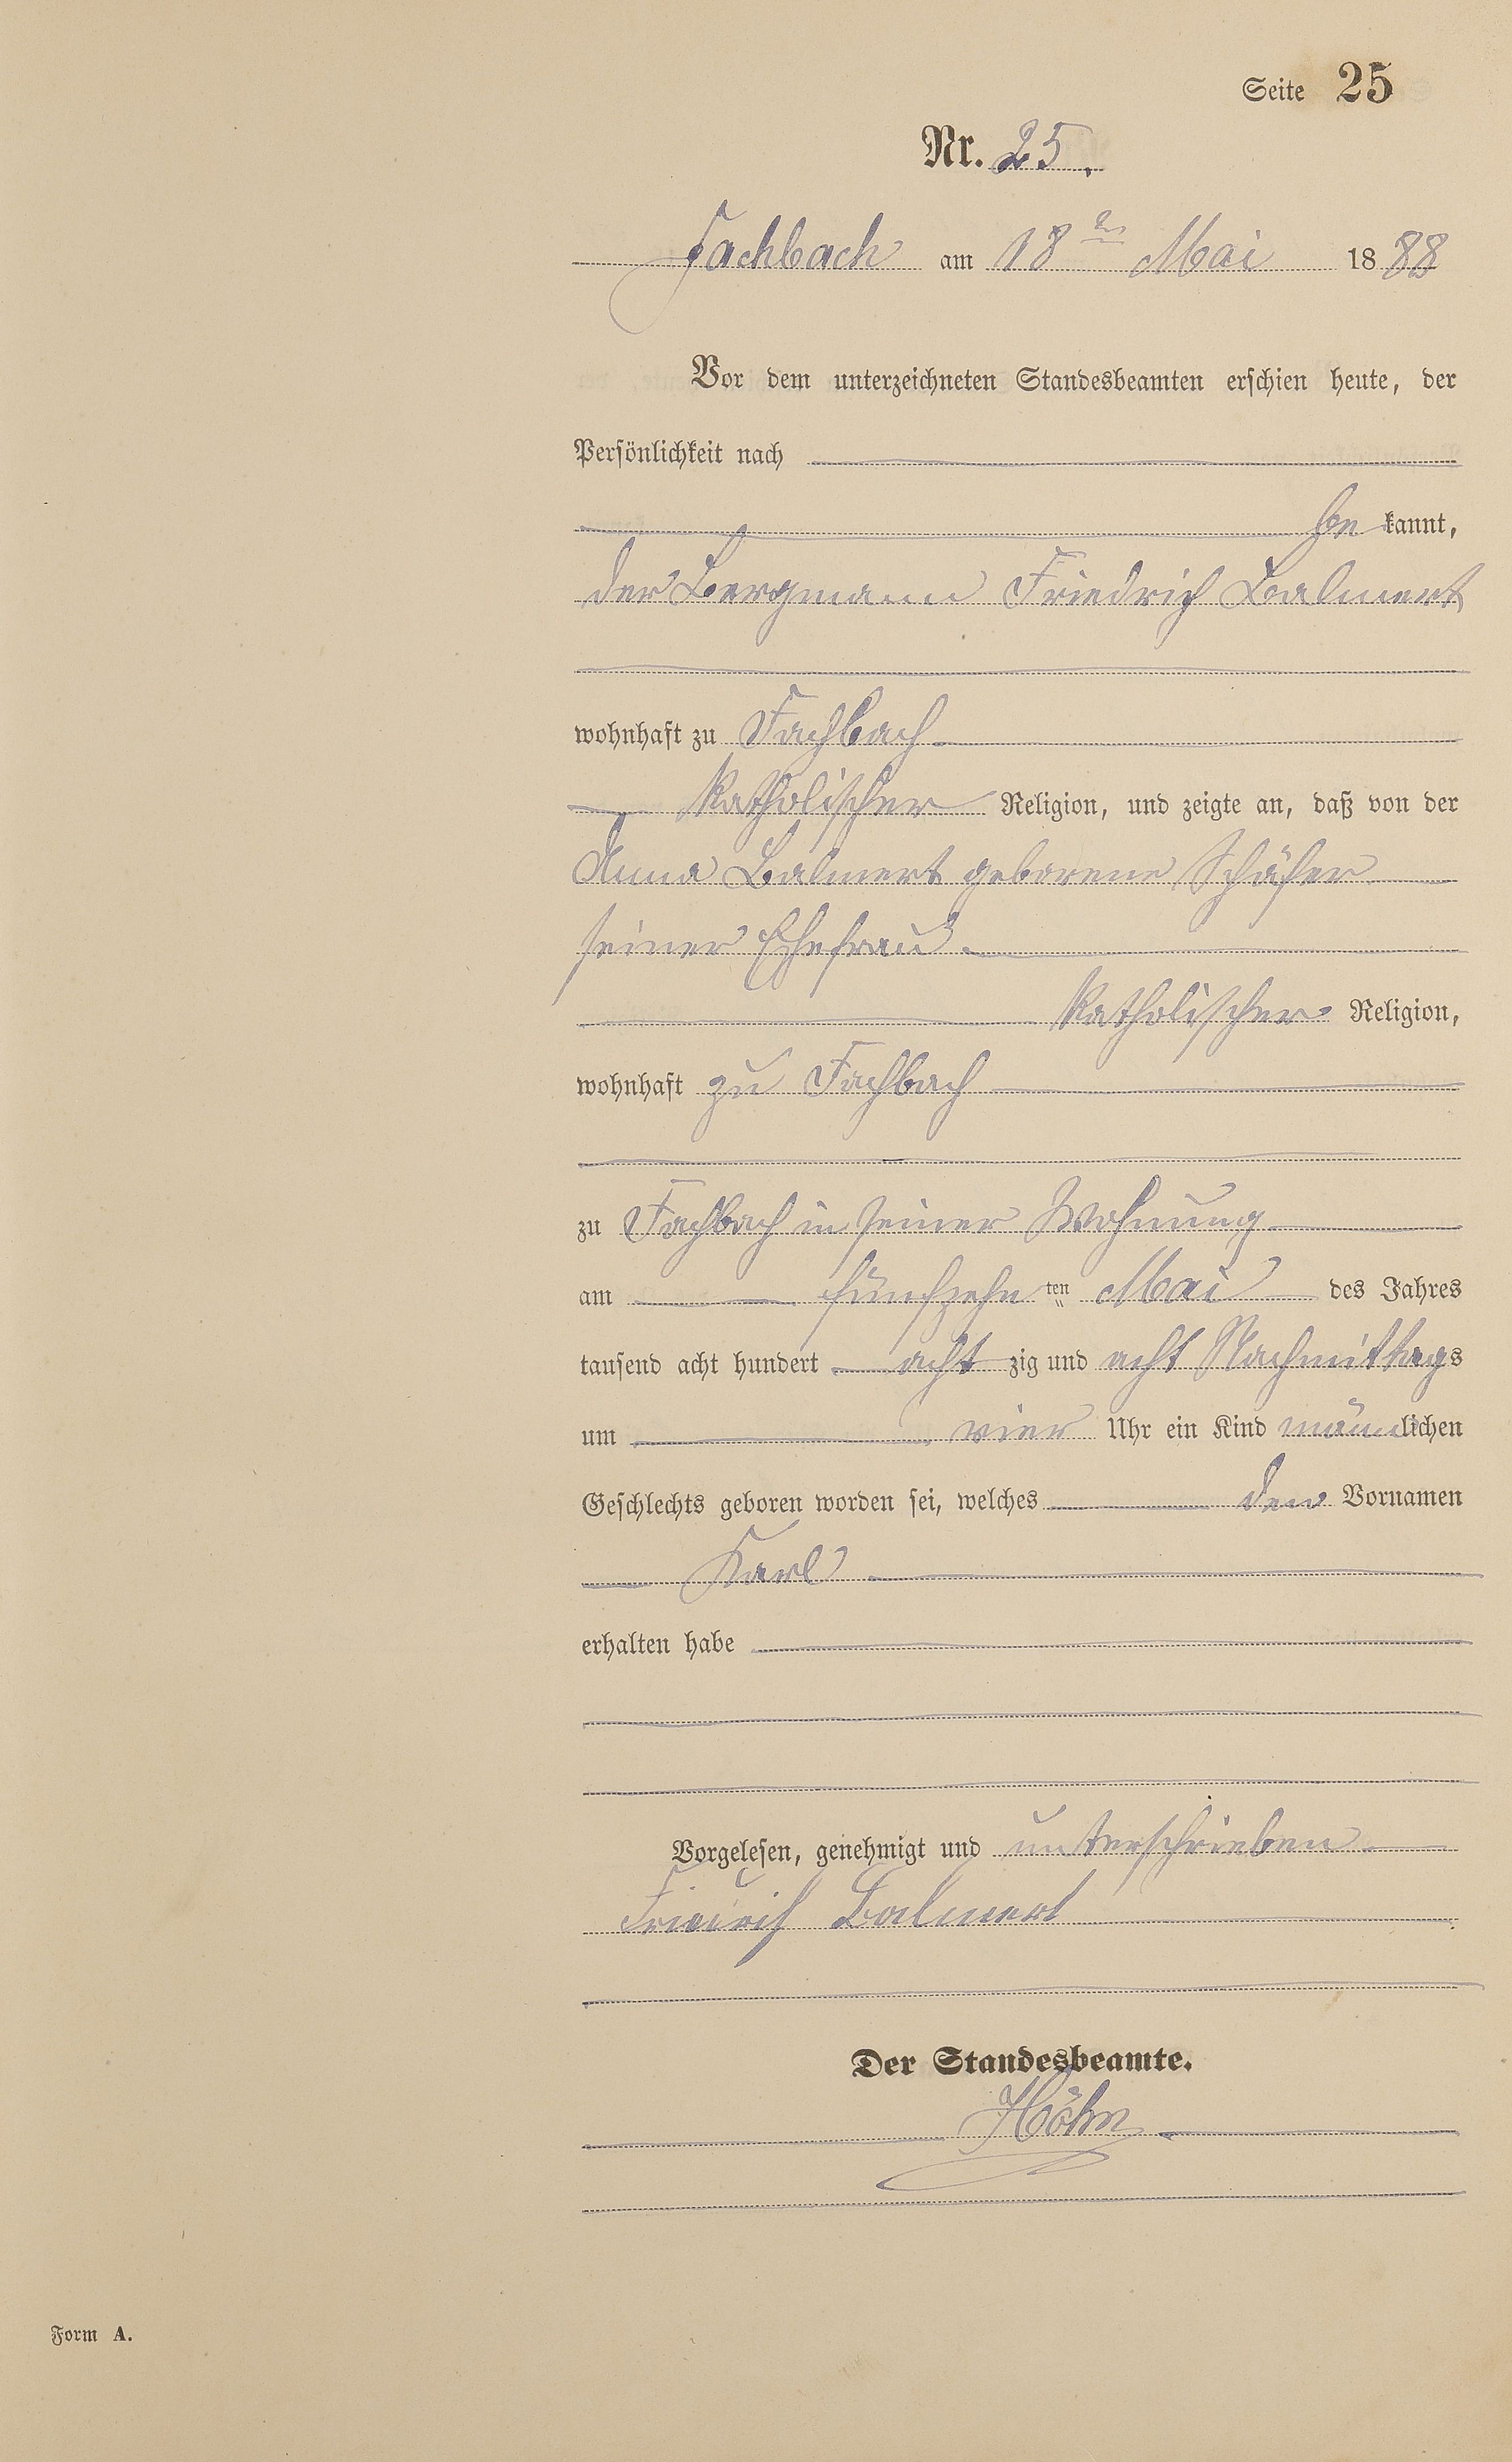 Seite 25
Nr. 25.
Fachbach am 18ten Mai 1888
Vor dem unterzeichneten Standesbeamten erschien heute, der
Persönlichkeit nach
bekannt,
der Bergmann Friedrich Balmert
wohnhaft zu Fachbach
katholischer Religion, und zeigte an, daß von der
Anna Balmert geborene Schäfer
seiner Ehefrau
katholischer Religion,
wohnhaft zu Fachbach
zu Fachbach in seiner Wohnung
am fünfzehnten Mai des Jahres
tausend acht hundert achtzig und acht Nachmittags
um vier Uhr ein Kind männlichen
Geschlechts geboren worden sei, welches den Vornamen
Karl
erhalten habe
Vorgelesen, genehmigt und unterschrieben
Friedrich Balmert
Der Standesbeamte.
Höhn
Form A.